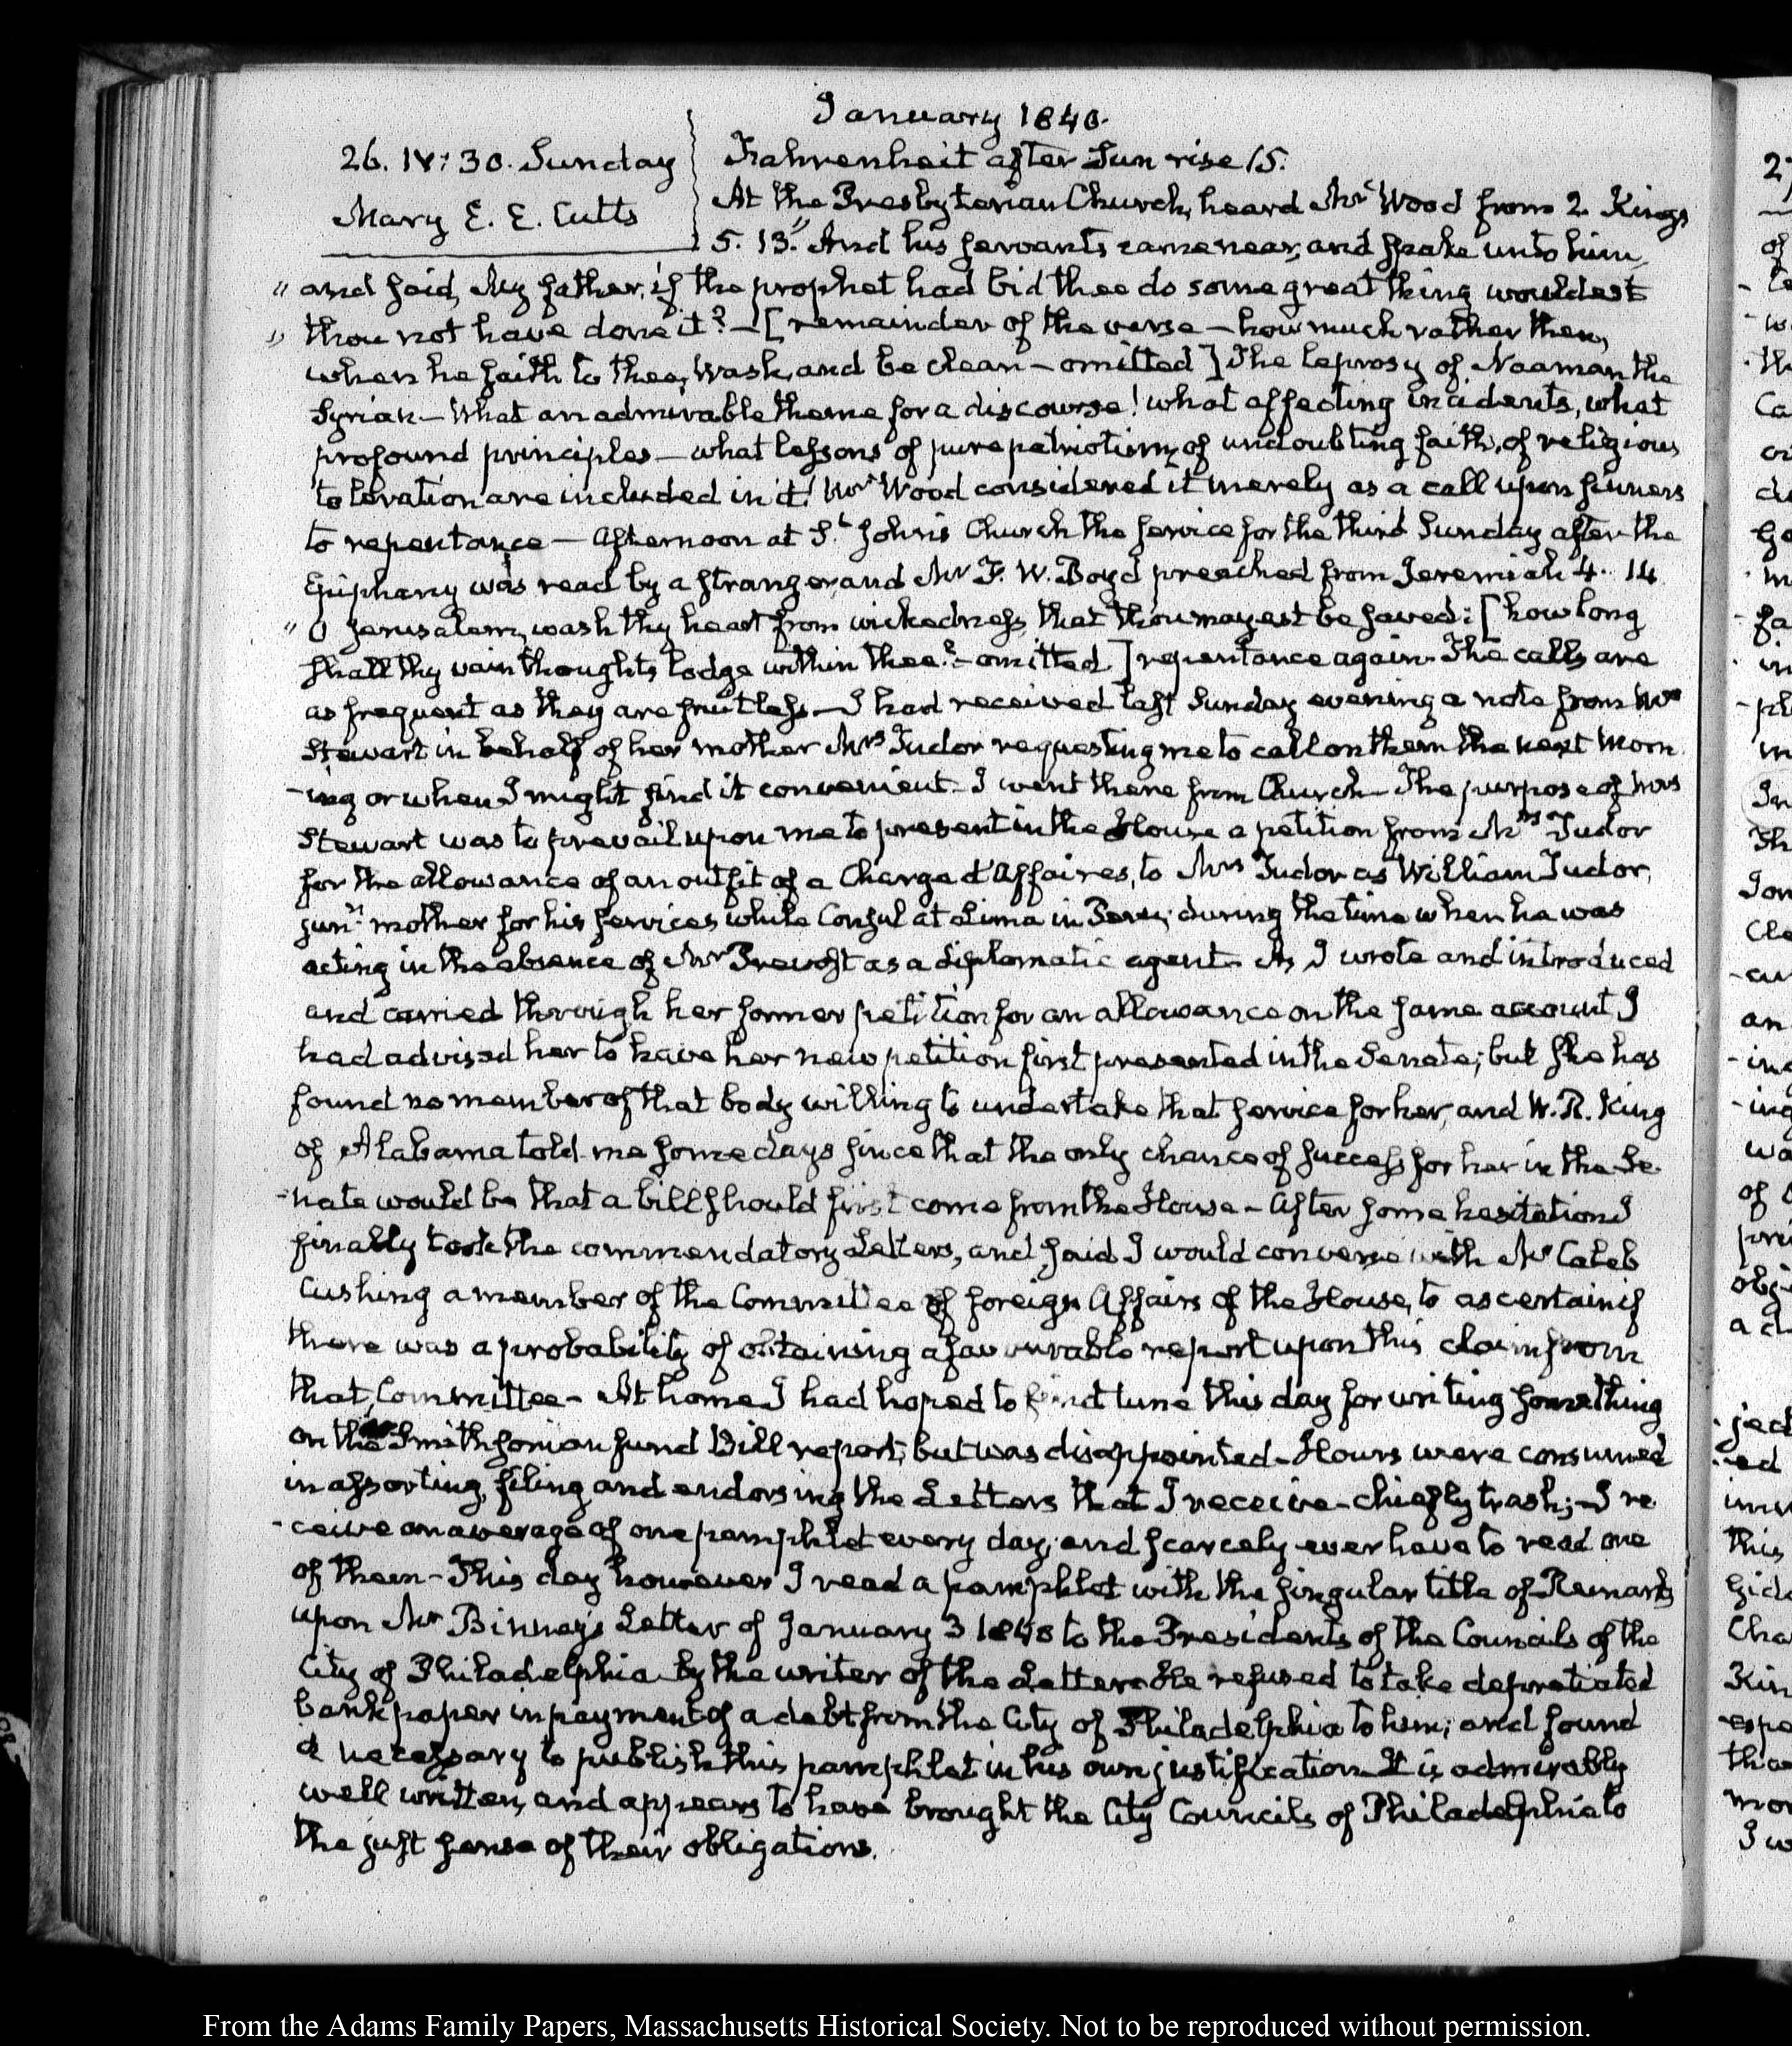 January 1840.
26. IV:30. Sunday
Mary E. E. Cutts
Fahrenheit after Sun rise 15.
At the Presbyterian Church, heard Mr Wood from 2. Kings
5. 13. "And his servants came near, and spake unto him,
" and said, My father, if the prophet had bid thee do some great thing wouldest
" thou not have done it? — [remainder of the verse — how much rather then,
when he saith to thee, Wash, and be clean — omitted] The leprosy of Naaman the
Syrian — What an admirable theme for a discourse! what affecting incidents, what
profound principles — what lessons of pure patriotism, of undoubting faith, of religious
toleration are included in it! Mr Wood considered it merely as a call upon sinners
to repentance — Afternoon at St. John's Church the service for the third Sunday after the
Epiphany was read by a stranger, and Mr F. W. Boyd preached from Jeremiah 4. 14
" O Jerusalem, wash thy heart from wickedness, that thou mayest be saved: [how long
shall thy vain thoughts lodge within thee? — omitted.] repentance again. The calls are
as frequent as they are fruitless — I had received last Sunday evening a note from Mrs
Stewart in behalf of her mother Mrs Tudor requesting me to call on them the next morn
-ing or when I might find it convenient. I went there from Church — The purpose of Mrs
Stewart was to prevail upon me to present in the House a petition from Mrs Tudor
for the allowance of an outfit of a Charge d'Affaires, to Mrs Tudor as William Tudor,
junr. mother for his services while Consul at Lima in Peru; during the time when he was
acting in the absence of Mr Prevost as a diplomatic agent. As I wrote and introduced
and carried through her former petition for an allowance on the same account, I
had advised her to have her new petition first presented in the Senate; but she has
found no member of that body willing to undertake that service for her, and W. R. King
of Alabama told me some days since that the only chance of success for her in the Se
-nate would be that a bill should first come from the House — After some hesitation I
finally took the commendatory Letters, and said I would converse with Mr Caleb
Cushing a member of the Committee of foreign Affairs of the House, to ascertain if
there was a probability of obtaining a favourable report upon this claim from
that Committee — At home I had hoped to find time this day for writing something
on the Smithsonian fund Bill report; but was disappointed — Hours were consumed
in assorting, filing, and endorsing the Letters that I receive — chiefly trash; — I re
-ceive on average of one pamphlet every day; and scarcely ever have to read one
of them — This day however I read a pamphlet with the singular title of Remarks
upon Mr Binney's Letter of January 3 1840 to the Presidents of the Councils of the
City of Philadelphia by the writer of the Letter. He refused to take depretiated
bank paper in payment of a debt from the City of Philadelphia to him; and found
it necessary to publish this pamphlet in his own justification. It is admirably
well written, and appears to have brought the City Councils of Philadelphia to
the just sense of their obligations.
From the Adams Family Papers, Massachusetts Historical Society. Not to be reproduced without permission.